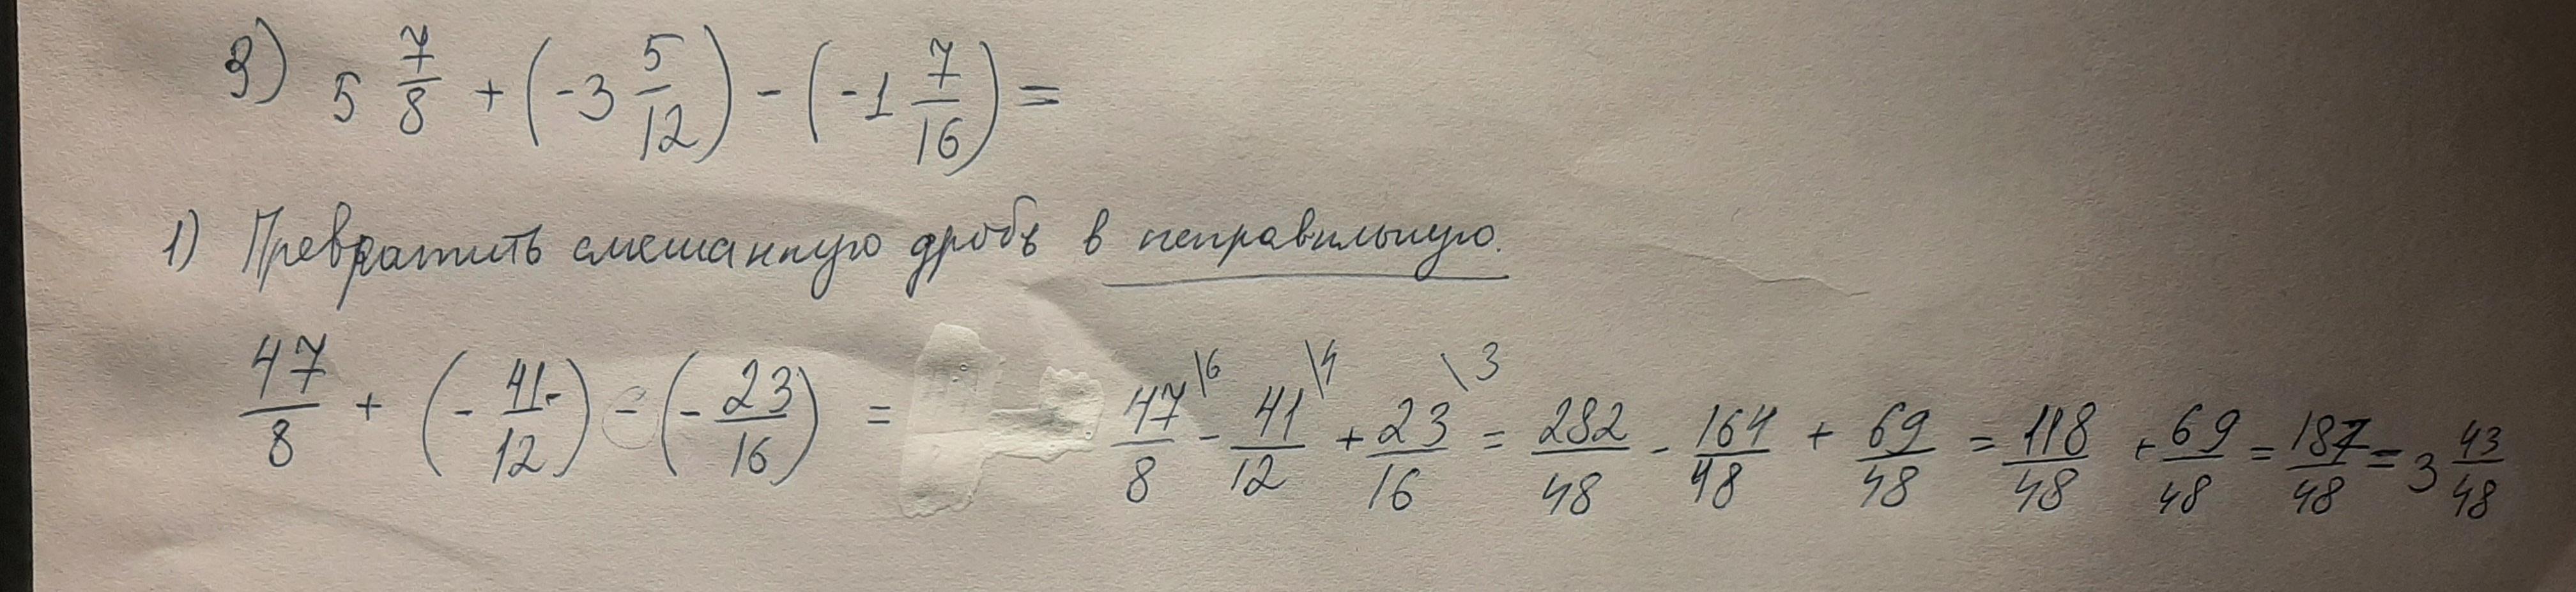 3) 5 7/8 + (-3 5/12) - (-1 7/16) =
1) Превратить смешанную дробь в неправильную.
47/8 + (- 41/12) - (- 23/16) = 47/8 \6 - 41/12 \4 + 23/16 \3 = 282/48 - 164/48 + 69/48 = 118/48 + 69/48 = 187/48 = 3 43/48